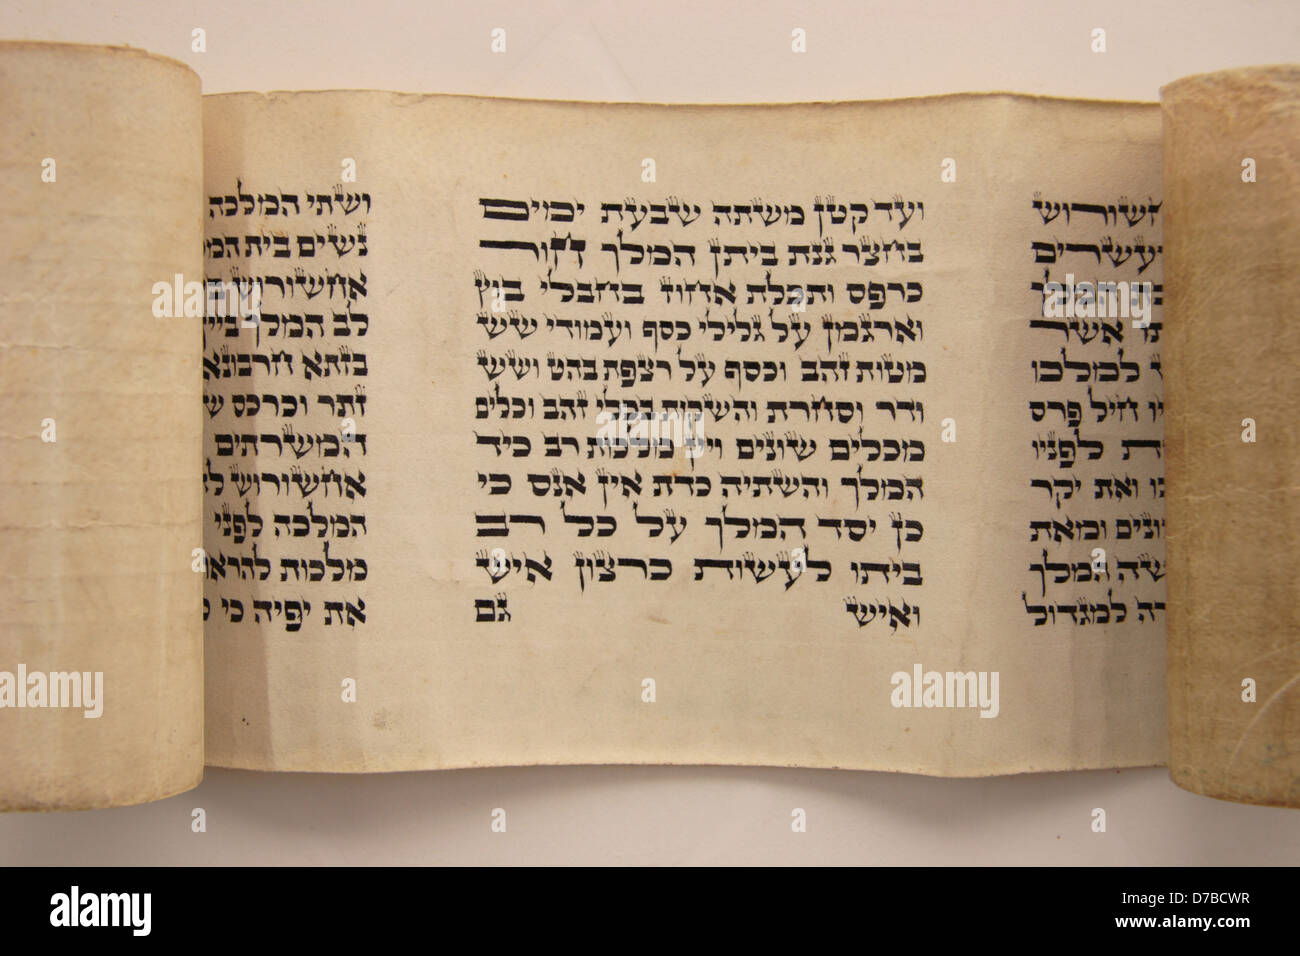 אחשורוש
ועשרים
המלך
אשר
למלכו
חיל פרס
לפניו
ואת יקר
ומאת
המלך
למגדול
ועד קטן משתה שבעת ימים
בחצר גנת ביתן המלך חור
כרפס ותכלת אחוז בחבלי בוץ
וארגמן על גלילי כסף ועמודי שש
מטות זהב וכסף על רצפת בהט ושש
ודר וסחרת והשקות בכלי זהב וכלים
מכלים שונים ויין מלכות רב כיד
המלך והשתיה כדת אין אנס כי
כן יסד המלך על כל רב
ביתו לעשות כרצון איש
ואיש גם
ושתי המלכה
נשים בית
אחשורוש
לב המלך ביין
בזתא חרבונא
זתר וכרכס
המשרתים
אחשורוש
המלכה לפני
מלכות להראות
את יפיה כי
alamy
Image ID: D7BCWR
www.alamy.com